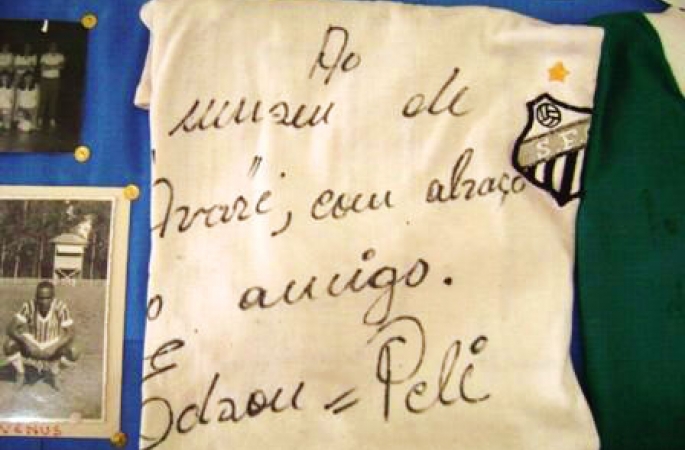 Ao
museu de
"Avaré", com abraço
o amigo.
E
Edson = Pelé
S F
VENUS